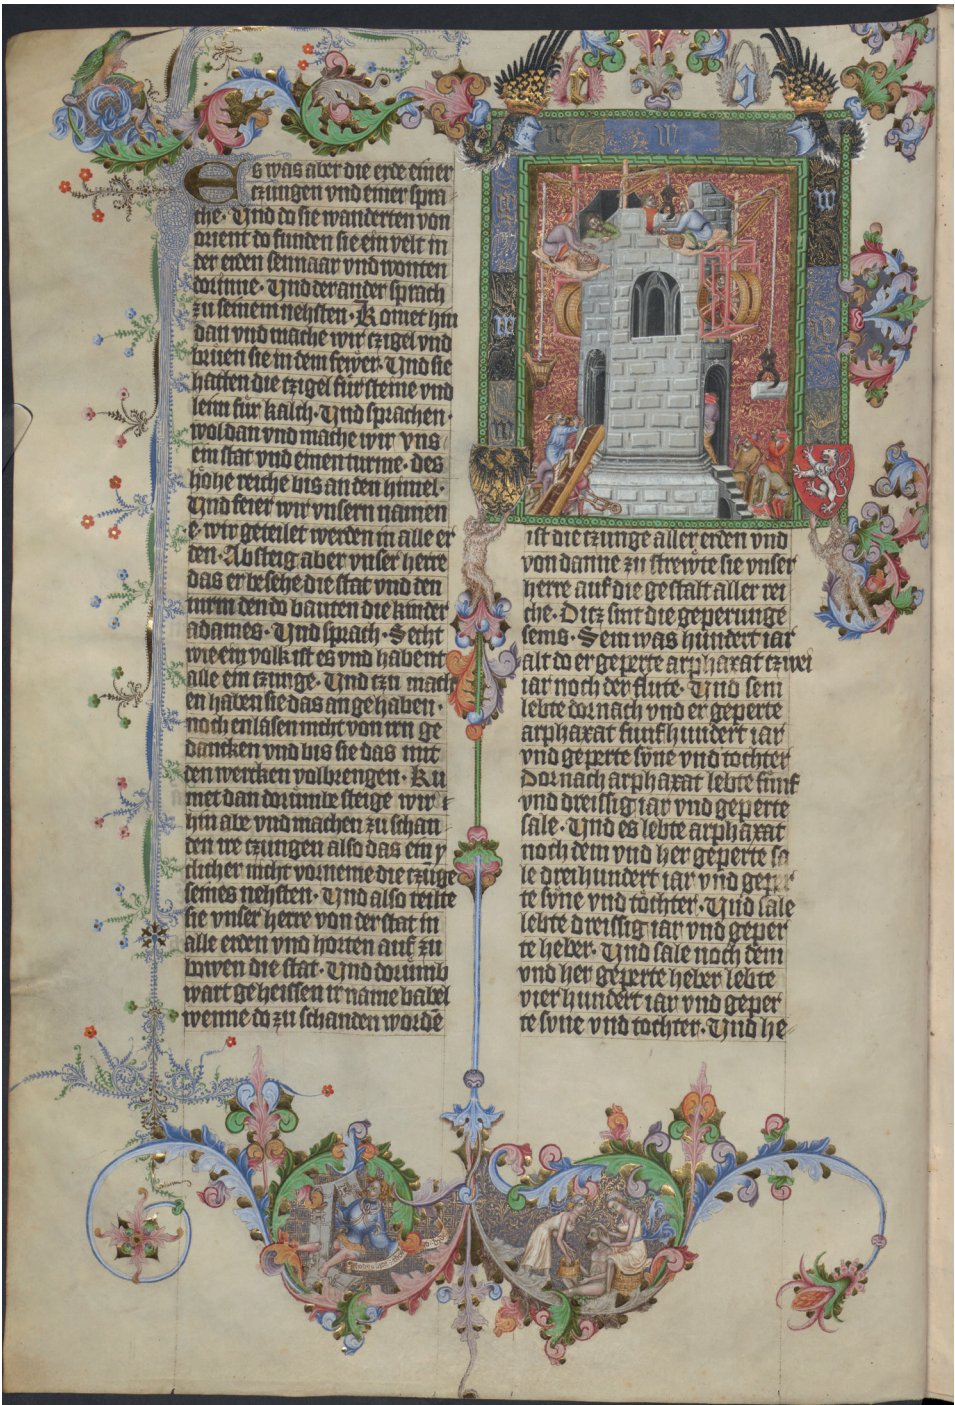 Es was aber die erde einer
czungen vnd einer spra
che · Vnd do sie wanderten von
orient do funden sie ein velt in
der erden sennaar vnd wonten
dorinne · Vnd der ander sprach
zu seinem nehsten · Komet hin
dan vnd mache wir czigel vnd
bruen sie in dem fewer · Vnd sie
hatten die czigel fur steine vnd
leim fur kalch · Vnd sprachen ·
wol dan vnd mache wir vns
ein stat vnd einen turme · des
hohe reiche bis an den himel ·
Vnd feier wir vnsern namen
e · wir geteilet werden in alle er
den · Absteig aber vnser herre
das er besehe die stat vnd den
turm den do bauten die kinder
adames · Vnd sprach · Secht
wie ein volk ist es vnd habent
alle ein czunge · Vnd czu mach
en haben sie das an gehaben ·
noch enlasen nicht von irn ge
dancken vnd bis sie das mit
den wercken volbrengen · Ku
met dan dorumbe steige wir
hin abe vnd machen zu schan
den ire czungen also das ein y
clicher nicht vorneme die czuge
seines nehsten · Vnd also teilte
sie vnser herre von der stat in
alle erden vnd horten auf zu
bowen die stat · Vnd dorumb
wart geheissen ir name babel
wenne do zu schanden worde
ist die czunge aller erden vnd
von danne zu strewte sie vnser
herre auf die gestalt aller rei
che · Ditz sint die geperunge
sems · Sem was hundert iar
alt do er geperte arphaxat czwei
iar noch der flute · Vnd sem
lebte dornach vnd er geperte
arphaxat funfhundert iar
vnd geperte sune vnd tochter
Dornach arphaxat lebte funf
vnd dreissig iar vnd geperte
sale · Vnd es lebte arphaxat
noch dem vnd her geperte sa
le dreihundert iar vnd geper
te sune vnd tochter · Vnd sale
lebte dreissig iar vnd geper
te heber · Vnd sale noch dem
vnd her geperte heber lebte
vier hundert iar vnd geper
te sune vnd tochter · Vnd he